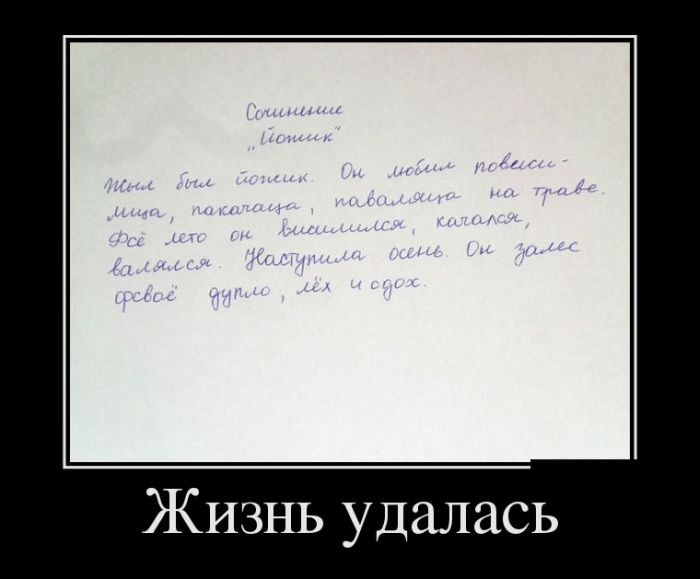 Сочинение
„Йожик"
Жыл был йожик. Он любил повеси-
лица, пакачаца, паваляца на траве.
Фсё лето он висилился, качался,
валялся. Наступила осень. Он залес
фсвоё дупло, лёх и сдох.
Жизнь удалась